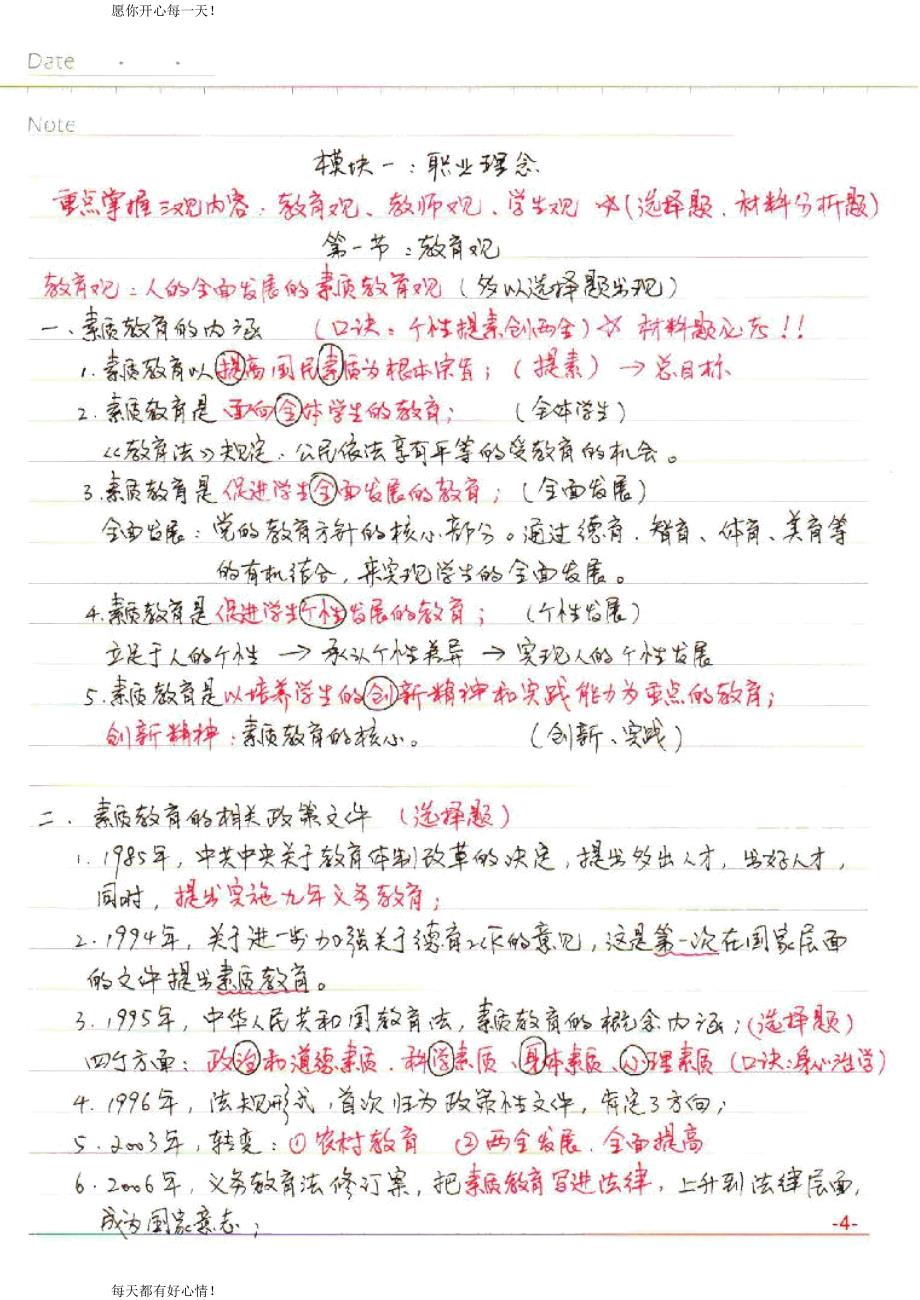 愿你开心每一天！
Date
Note
模块一：职业理念
重点掌握三观内容：教育观、教师观、学生观 ☆(选择题、材料分析题)
第一节：教育观
教育观：人的全面发展的素质教育观（多以选择题出现）
一、素质教育的内涵 （口诀：个性提素创两全）☆ 材料题必考！！
1.素质教育以提高国民素质为根本宗旨；（提素）→总目标
2.素质教育是面向全体学生的教育；（全体学生）
《教育法》规定：公民依法享有平等的受教育的机会。
3.素质教育是促进学生全面发展的教育；（全面发展）
全面发展：党的教育方针的核心部分。通过德育、智育、体育、美育等
的有机结合，来实现学生的全面发展。
4.素质教育是促进学生个性发展的教育；（个性发展）
立足于人的个性→承认个性差异→实现人的个性发展
5.素质教育是以培养学生的创新精神和实践能力为重点的教育；
创新精神：素质教育的核心。（创新、实践）
二、素质教育的相关政策文件（选择题）
1.1985年，中共中央关于教育体制改革的决定，提出多出人才，出好人才，
同时，提出实施九年义务教育；
2.1994年，关于进一步加强关于德育工作的意见，这是第一次在国家层面
的文件提出素质教育。
3.1995年，中华人民共和国教育法，素质教育的概念内涵；(选择题)
四个方面：政治和道德素质、科学素质、身体素质、心理素质（口诀：身心治学）
4.1996年，法规形式，首次归为政策性文件，肯定了方向；
5.2003年，转变：①农村教育 ②两全发展、全面提高
6.2006年，义务教育法修订案，把素质教育写进法律，上升到法律层面，
成为国家意志；
-4-
每天都有好心情！